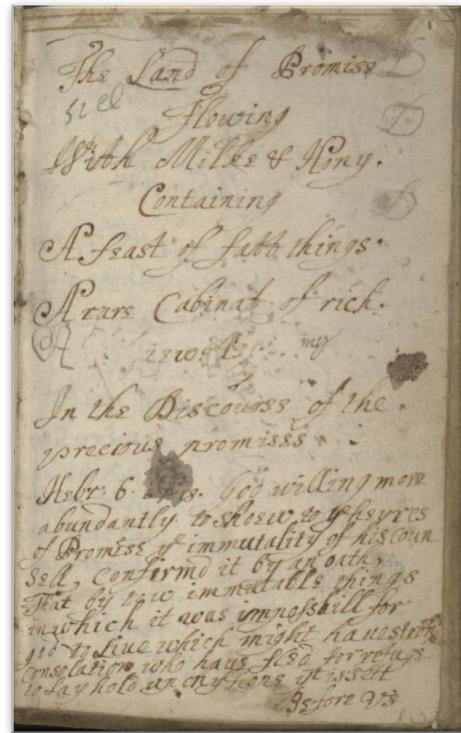 The Land of Promise
Flowing
With Milke & Hony.
Containing
A feast of fatt things.
A rare Cabinat of rich
iewels. my
In the Discourse of the
precious promises.
Hebr. 6. 18. God willing more
abundantly to shoew to ye heyres
of Promise ye immutality of his coun
sell, confirmd it by an oath,
That by two immutable things
in which it was impossbill for
god to live which might have strong
Consolation who have fled for refuge
to lay hold upon ye hope yt is sett
Before us